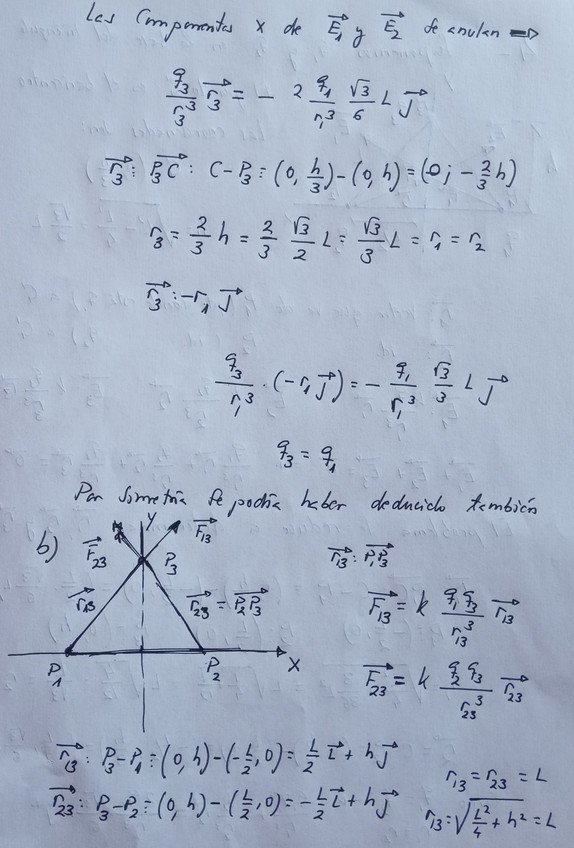 Las Componentes x de E₁⃗ y E₂⃗ se anulan ⇒
q₃/r₃³ r₃⃗ = - 2 q₁/r₁³ √3/6 L j⃗
r₃⃗ : P₃C⃗ : C-P₃ : (0, h/3) - (0, h) = (0; -2/3 h)
r₃ = 2/3 h = 2/3 √3/2 L = √3/3 L = r₁ = r₂
r₃⃗ : -r₁ j⃗
q₃/r₁³ · (-r₁ j⃗) = - q₁/r₁³ √3/3 L j⃗
q₃ = q₁
Por simetría se podía haber deducido también
b)
y
F₁₃⃗
F₂₃⃗
P₃
r₁₃⃗
r₂₃⃗ = P₂P₃⃗
P₁
P₂
x
r₁₃⃗ : P₁P₃⃗
F₁₃⃗ = k q₁q₃/r₁₃³ r₁₃⃗
F₂₃⃗ = k q₂q₃/r₂₃³ r₂₃⃗
r₁₃⃗ : P₃-P₁ : (0, h) - (-L/2, 0) = L/2 i⃗ + h j⃗
r₂₃⃗ : P₃-P₂ : (0, h) - (L/2, 0) = -L/2 i⃗ + h j⃗
r₁₃ = r₂₃ = L
r₁₃ = √(L²/4 + h²) = L